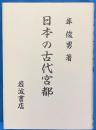 岸俊男著
日本の古代宮都
岩波書店